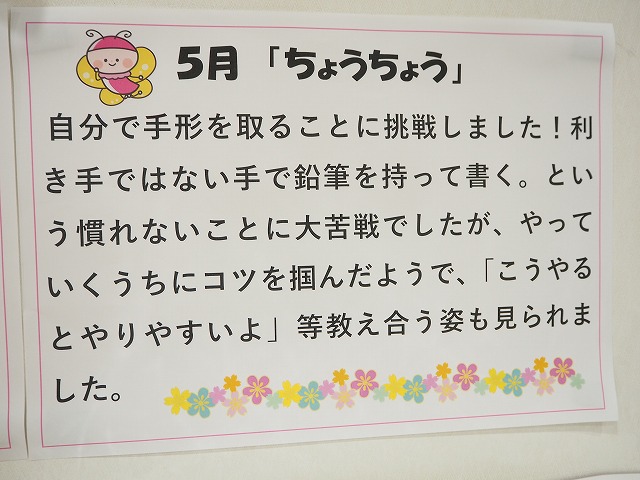 5月「ちょうちょう」
自分で手形を取ることに挑戦しました！利
き手ではない手で鉛筆を持って書く。とい
う慣れないことに大苦戦でしたが、やって
いくうちにコツを掴んだようで、「こうやる
とやりやすいよ」等教え合う姿も見られま
した。